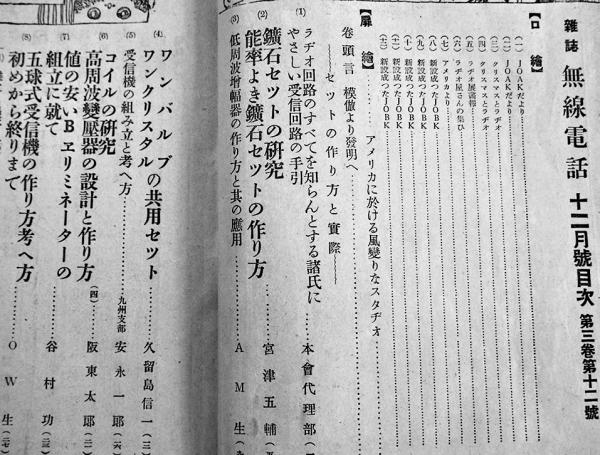 雜誌 無線電話 十二月號目次 第三卷第十二號
【口繪】
(一) JOAKだより
(二) JOAKだより
(三) クリスマスとラヂオ
(四) クリスマスとラヂオ
(五) ラヂオ展畫報
(六) ラヂオ屋さんの集ひ
(七) アメリカより
(八) 新設成つたJOBK
(九) 新設成つたJOBK
(十) 新設成つたJOBK
(十一) 新設成つたJOBK
(十二) 新設成つたJOBK
(十三) 新設成つたJOBK
【扉繪】………アメリカに於ける風變りなスタヂオ
卷頭言 模倣より發明へ
――セットの作り方と實際――
(1) ラヂオ回路のすべてを知らんとする諸氏に
やさしい受信回路の手引………本會代理部(一
(2) 鑛石セットの研究
能率よき鑛石セットの作り方………宮津五輔(五
(3) 低周波增幅器の作り方と其の應用………AM生(九
(4) ワンバルブ
ワンクリスタルの共用セット………久留島信一(一三)
(5) 受信機の組み立と考へ方………九州支部 安永一郞(一六)
(6) コイルの研究
高周波變壓器の設計と作り方(四)………阪東太郞(二一)
(7) 値の安いBエリミネーターの
組立に就て………谷村功(二五)
(8) 五球式受信機の作り方考へ方
初めから終りまで………OW生(二七)